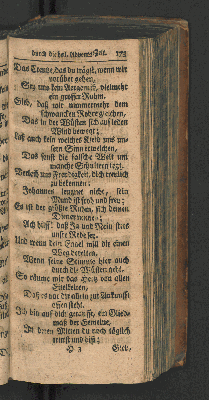 durch die heil. Advents-Zeit. 173
Das Creutze, das du trägst, wenn wir
vorüber gehen,
Sey uns kein Aergerniß, vielmehr
ein grosser Ruhm.
Gieb, daß wir nimmermehr dem
schwancken Rohre gleichen,
Das in der Wüsten sich auf jeden
Wind bewegt;
Laß auch kein weiches Kleid uns un-
sern Sinn erweichen,
Das sonst die falsche Welt um
manche Schultern legt.
Verleih uns Freudigkeit, dich treulich
zu bekennen:
Johannes leugnet nicht, sein
Mund ist froh und frey;
Es ist der größte Ruhm, sich deinen
Diener nennen:
Ach hilff! daß Ja und Nein stets
unsre Rede sey.
Und wenn dein Engel will dir einen
Weg bereiten,
Wenn seine Stimme hier auch
durch die Wüsten geht,
So räume mir das Hertz von allen
Eitelkeiten,
Daß es nur dir allein zur Ankunfft
offen steht.
Ich bin auf dich getaufft, ein Glied-
maß der Gemeine,
In deren Mitten du noch täglich
trittst und bist;
3 Gieb,